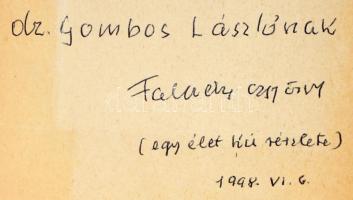 dr. Gombos Lászlónak
Faludy György
(egy élet kis részlete)
1998. VI. 6.